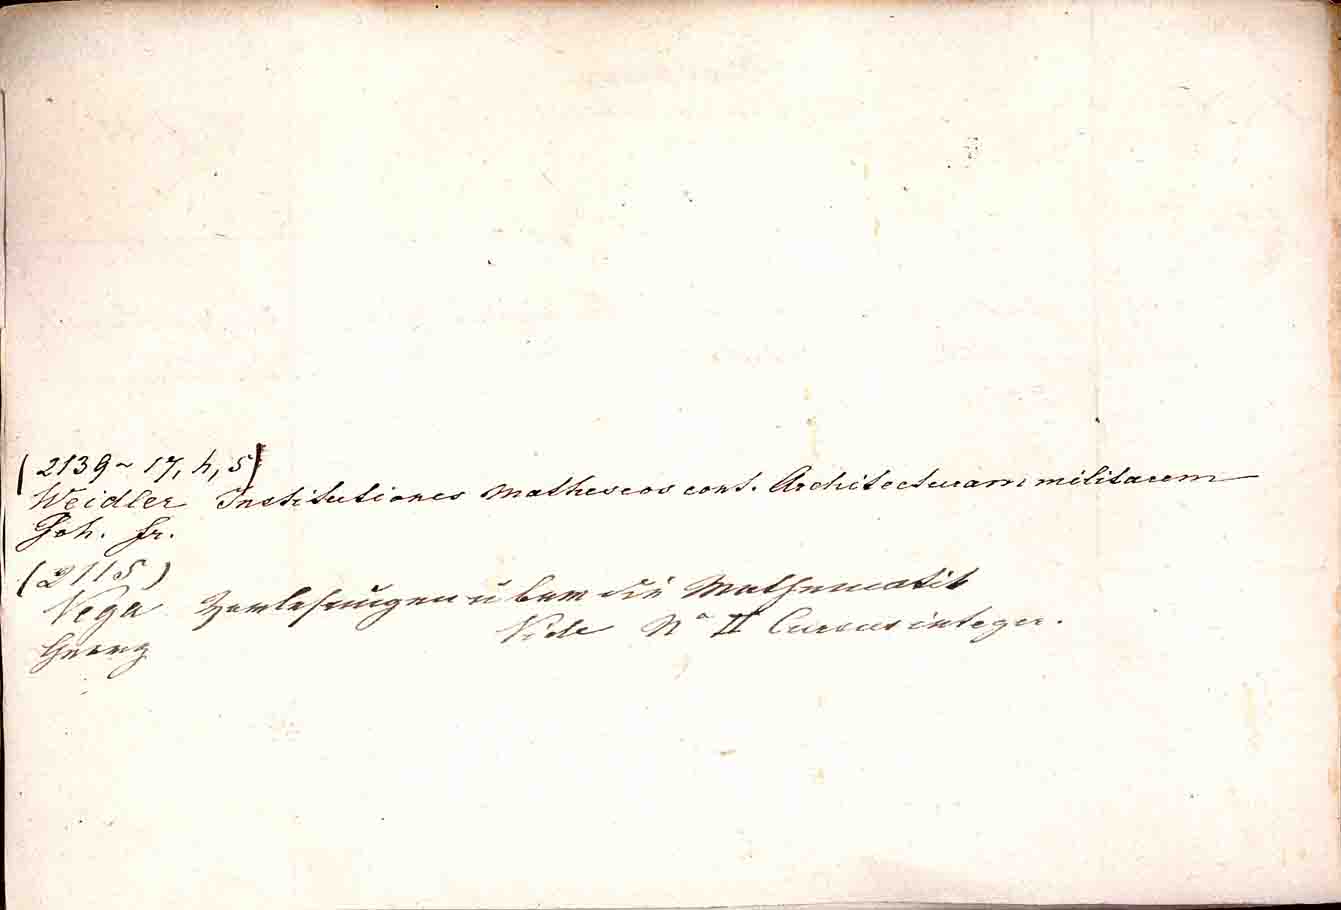 (2139~17, h, 5)
Weidler Institutiones Matheseos cont. Architecturam militarem
Joh. Fr.
(2115)
Vega Vorlesungen über die Mathematik
Vide No II Cursus integer.
Georg